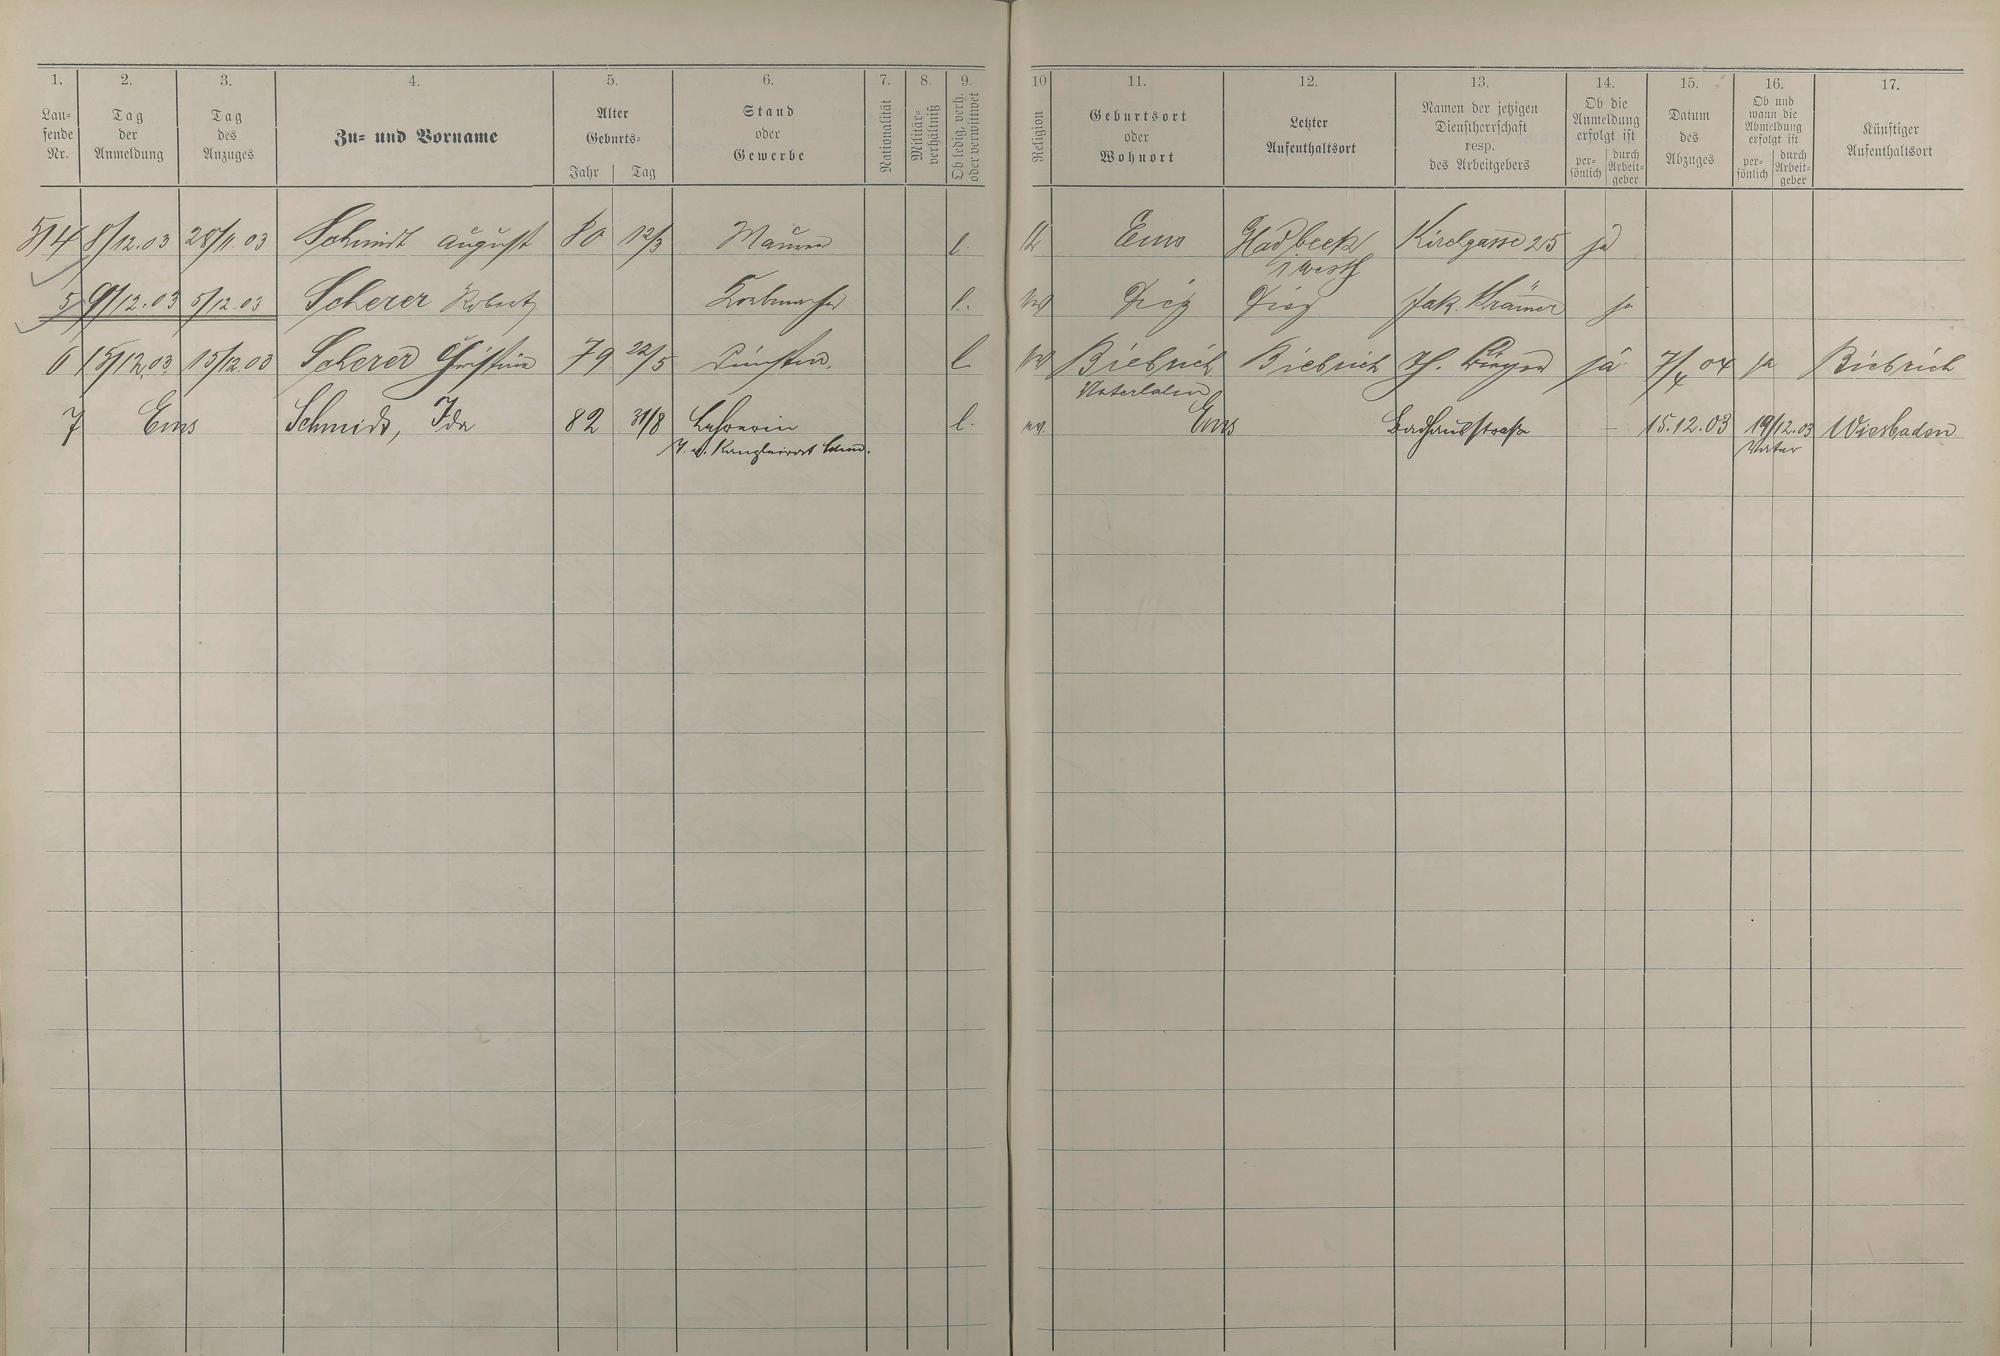 1. 2. 3. 4. 5. 6. 7. 8. 9. 10 11. 12. 13. 14. 15. 16. 17.
Lau-
fende
Nr.
Tag
der
Anmeldung
Tag
des
Anzuges
Zu- und Vorname
Alter
Geburts-
Jahr Tag
Stand
oder
Gewerbe
Nationalität
Militär-
verhältniß
Ob ledig, verh.
oder verwittwet
Religion
Geburtsort
oder
Wohnort
Letzter
Aufenthaltsort
Namen der jetzigen
Dienstherrschaft
resp.
des Arbeitgebers
Ob die
Anmeldung
erfolgt ist
per-
sönlich
durch
Arbeit-
geber
Datum
des
Abzuges
Ob und
wann die
Abmeldung
erfolgt ist
per-
sönlich
durch
Arbeit-
geber
Künftiger
Aufenthaltsort
514 8/12.03 28/11.03 Schmidt August 80 12/3 Maurer l. Ems Gladbeck Kirchgasse 25 ja
i Westf
5 9/12.03 5/12.03 Scherer Robert Korbmacher l. Diez Diez Jak. Krämer ja
6 15/12.03 15/12.03 Scherer Christine 79 22/5 l. Biebrich Biebrich Th. ja 7/4 04 ja Biebrich
7 Ems Schmidt, Ida 82 31/8 Lehrerin l. ev. Ems Badhausstraße – 15.12.03 19/12.03 Wiesbaden
T. v. Kanzleirat Schm. Vater